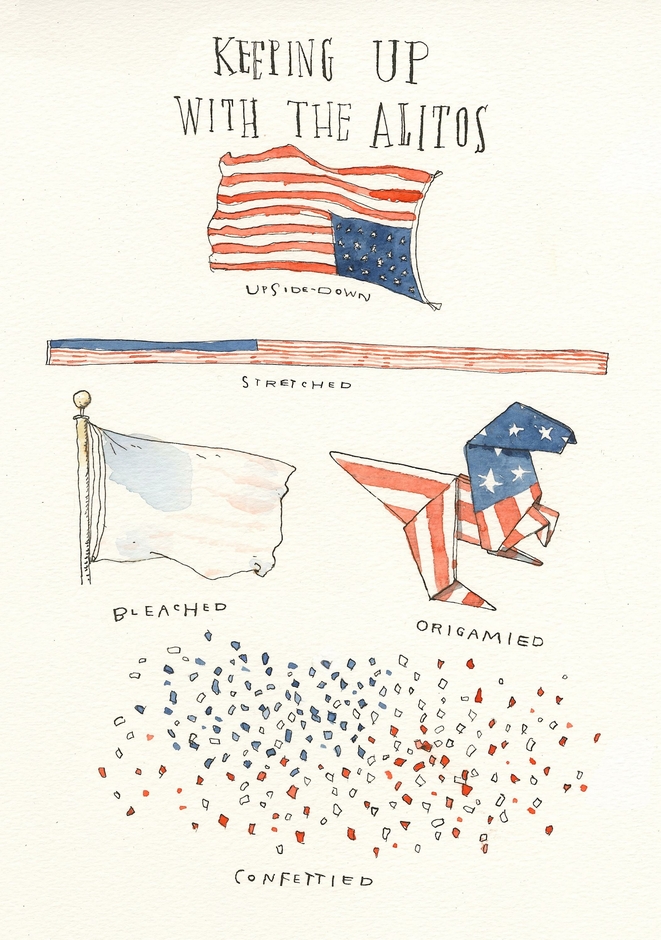 KEEPING UP
WITH THE ALITOS
UPSIDE-DOWN
STRETCHED
BLEACHED
ORIGAMIED
CONFETTIED